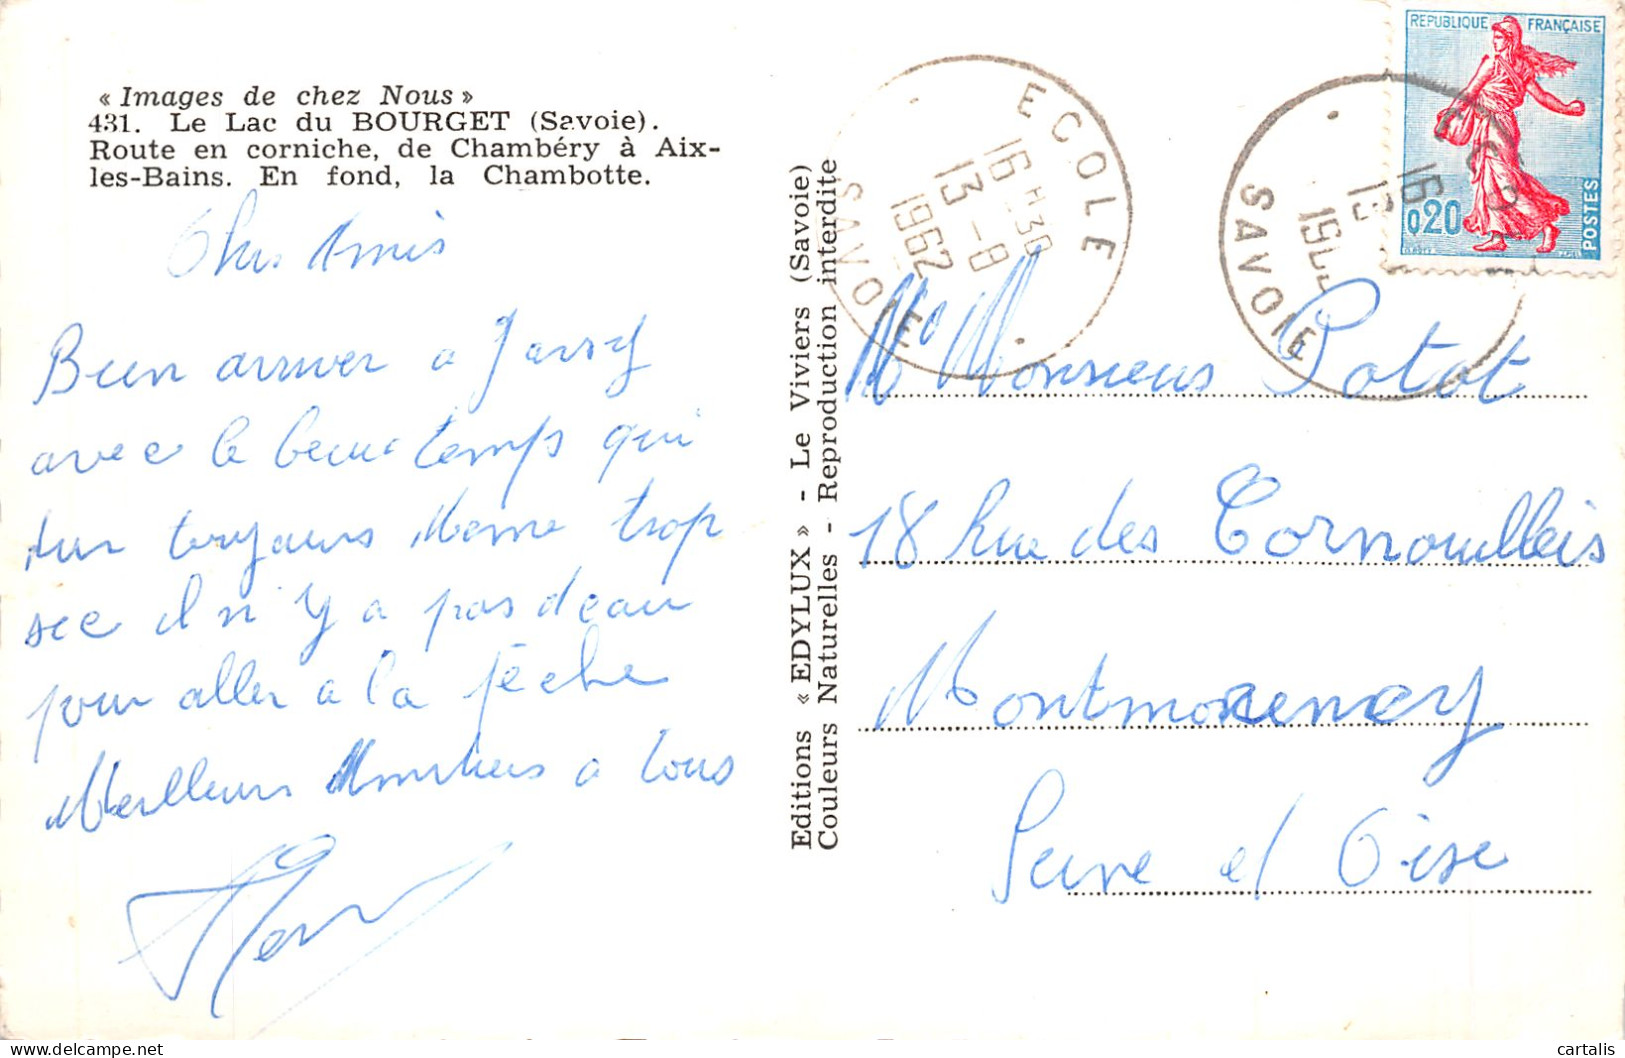 « Images de chez Nous »
431. Le Lac du BOURGET (Savoie).
Route en corniche, de Chambéry à Aix-
les-Bains. En fond, la Chambotte.
Cher Amis
Bien arriver a Jarsy
avec le beau temps qui
dur toujours Meme trop
sec il n'y a pas deau
pour aller a la pêche
Meilleurs a tous
Editions « EDYLUX » - Le Viviers (Savoie)
Couleurs Naturelles - Reproduction interdite
ECOLE
16 H 30
13 - 9
1962
SAVOIE
16
13
SAVOIE
REPUBLIQUE FRANÇAISE
0,20
POSTES
Monsieur Potot
18 Rue des Cornouilleis
Montmorency
Seine et Oise
cartalis